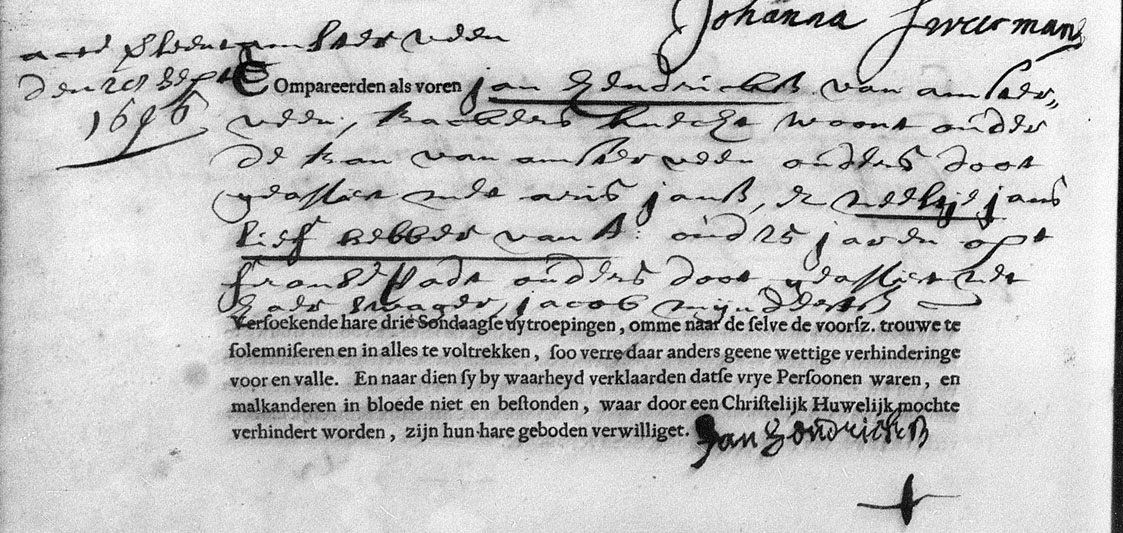 Johanna
Amsterveen
den 28 Sept
1696
Compareerden als voren Jan Hendricksz van Amster„
veen, backers knecht woont onder
de ban van Amsterveen ouders doot
geassist met aris Jansz, & neeltje Jans
lief hebber van A: oud 25 jaren opt
franse padt ouders doot geassist met
haer swager, Jacob mijndertsz
Versoekende hare drie Sondaagse uytroepingen, omme naar de selve de voorsz. trouwe te
solemniseren en in alles te voltrekken, soo verre daar anders geene wettige verhinderinge
voor en valle. En naar dien sy by waarheyd verklaarden datse vrye Persoonen waren, en
malkanderen in bloede niet en bestonden, waar door een Christelijk Huwelijk mochte
verhindert worden, zijn hun hare geboden verwilliget.
Jan Hendricksz